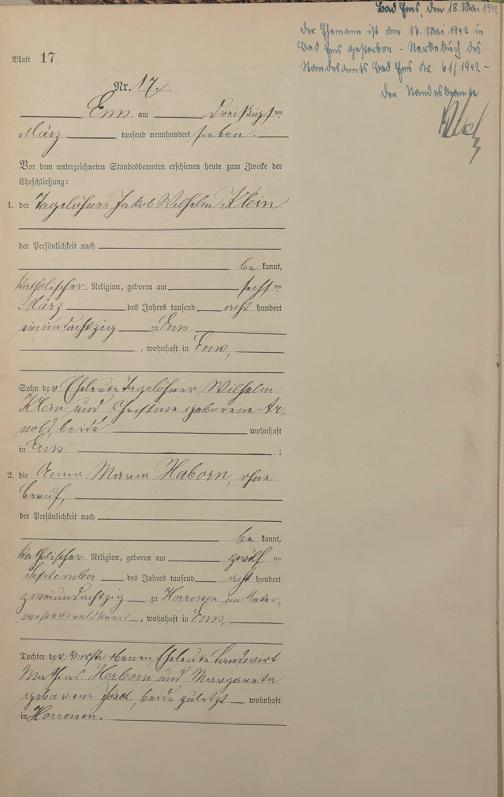 Bad Ems, den 18. Mai 1942
Der Ehemann ist am 17. Mai 1942 in
Bad Ems gestorben – Sterbebuch des
Standesamts Bad Ems Nr. 61/1942 –
Der Standesbeamte
Blatt 17
Nr. 17.
Ems am dreißigsten
März tausend neunhundert sieben.
Vor dem unterzeichneten Standesbeamten erschienen heute zum Zwecke der
Eheschließung:
1. der Tagelöhner Jakob Wilhelm Klein
der Persönlichkeit nach
be kannt,
katholischer Religion, geboren am sechsten
März des Jahres tausend acht hundert
einundachtzig zu Ems
, wohnhaft in Ems,
Sohn der Eheleute Tagelöhner Wilhelm
Klein und Christine geborene Ar-
nold, beide wohnhaft
in Ems ;
2. die Anna Maria Haborn, ohne
Beruf,
der Persönlichkeit nach
be kannt,
katholischer Religion, geboren am zwölf ten
September des Jahres tausend acht hundert
zweiundachtzig zu Horressen im Unter-
westerwaldkreis, wohnhaft in Ems,
Tochter der verstorbenen Eheleute Landwirt
Mathias Haborn und Margareta
geborene beide zuletzt wohnhaft
in Horressen.